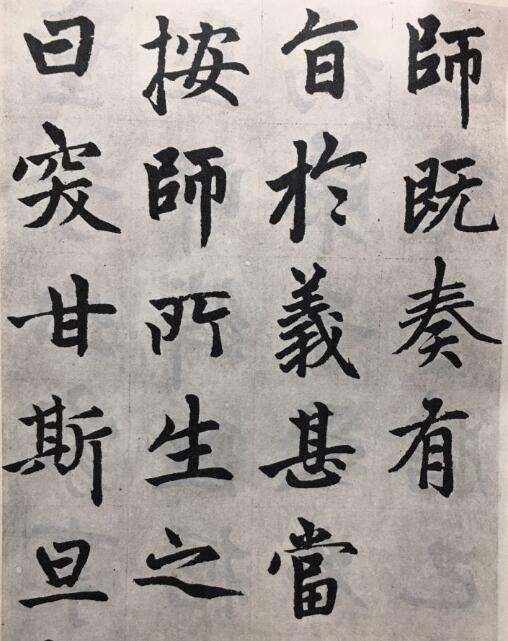 師既奏有
旨於義甚當
按師所生之
曰突甘斯旦